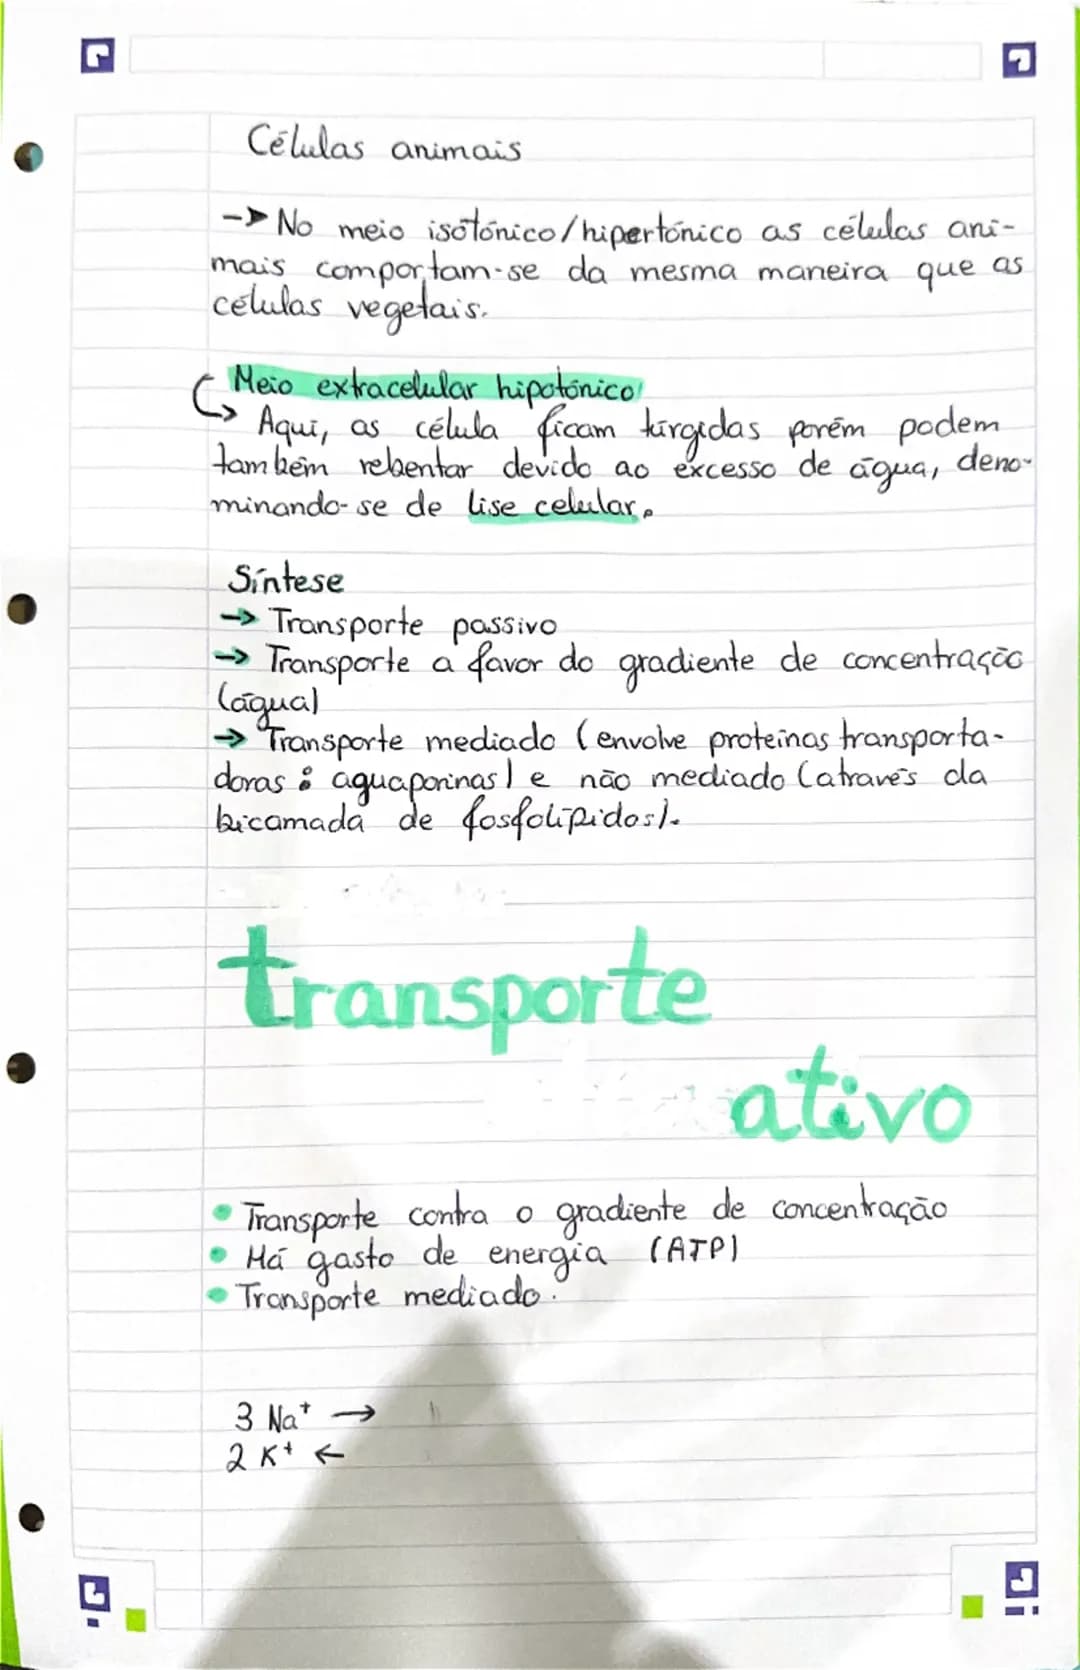 Células animais
-> No meio isotónico/hipertónico as células ani-
mais comportam-se da mesma maneira que as
células vegetais.
Meio extracelular hipotónico:
↳ Aqui, as célula ficam túrgidas porém podem
também rebentar devido ao excesso de água, deno-
minando-se de lise celular.
Síntese
→ Transporte passivo
→ Transporte a favor do gradiente de concentração
(água)
→ Transporte mediado (envolve proteínas transporta-
doras: aquaporinas) e não mediado (através da
bicamada de fosfolípidos).
transporte
ativo
• Transporte contra o gradiente de concentração
• Há gasto de energia (ATP)
• Transporte mediado.
3 Na⁺ →
2 K⁺ ←